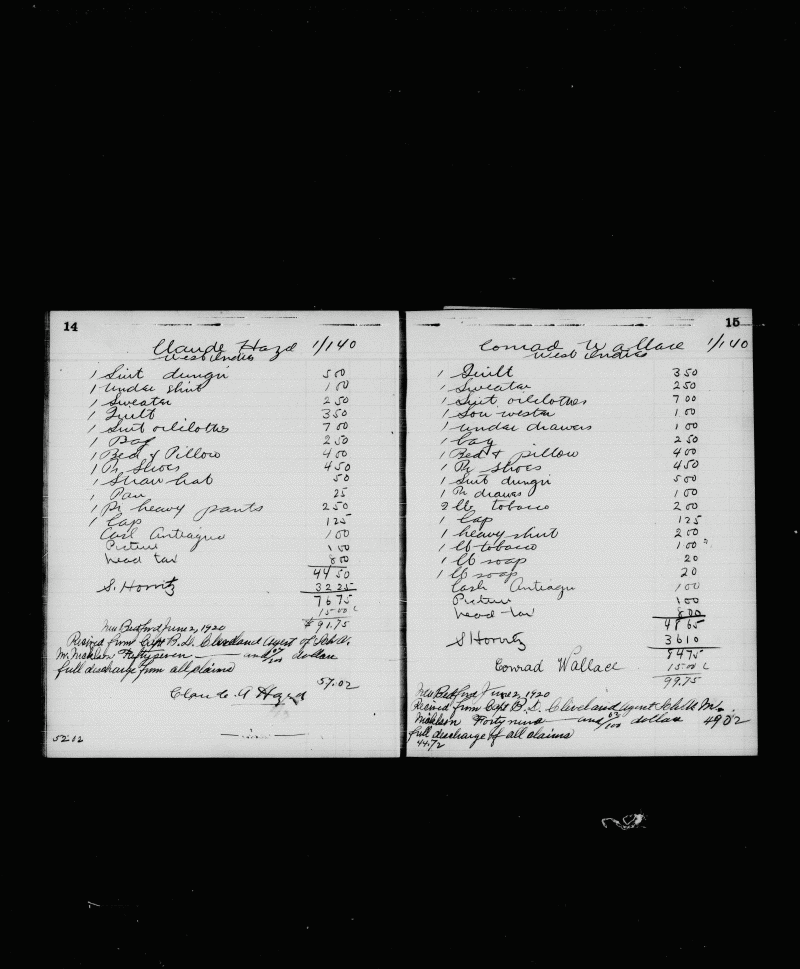 14
Claude Hazd 1/140
West Indies
1 Suit dungri 5 00
1 under shirt 1 00
1 Sweater 2 50
1 Quilt 3 50
1 Suit oilclothes 7 00
1 Bag 2 50
1 Bed & Pillow 4 00
1 Pr Shoes 4 50
1 Straw hat 50
1 Pan 25
1 Pr heavy pants 2 50
1 Cap 1 25
Cash Antiagua 1 00
Picture 1 00
head tax 8 00
44 50
S. Horvitz 32 25
76 75
15 00 c
$ 91.75
New Bedford June 2, 1920
Recived from Capt B. D. Cleveland Agent of Sch W.
M. Nickleson Fiftyseven and 02/100 dollars
full discharge from all claims
57.02
Claude A Hazd
52.02
15
Conrad Wallace 1/140
West Indies
1 Quilt 3 50
1 Sweater 2 50
1 Suit oilclothes 7 00
1 Sou wester 1 00
1 under drawers 1 00
1 bag 2 50
1 Bed & pillow 4 00
1 Pr shoes 4 50
1 Suit dungri 5 00
1 Pr drawes 1 00
2 lb tobacco 2 00
1 Cap 1 25
1 heavy shirt 2 00
1 lb tobacco 1 00
1 lb soap 20
1 lb soap 20
Cash Antiagu 1 00
Picture 1 00
head-tax 8 00
48 65
S Horvitz 36 10
84 75
Conrad Wallace 15 00 c
99.75
New Bedford June 2, 1920
Recived from Capt B. D. Cleveland agent Sch W M.
Nickleson Forty nine and 02/100 dollars 49 02
full discharge of all claims
44.72